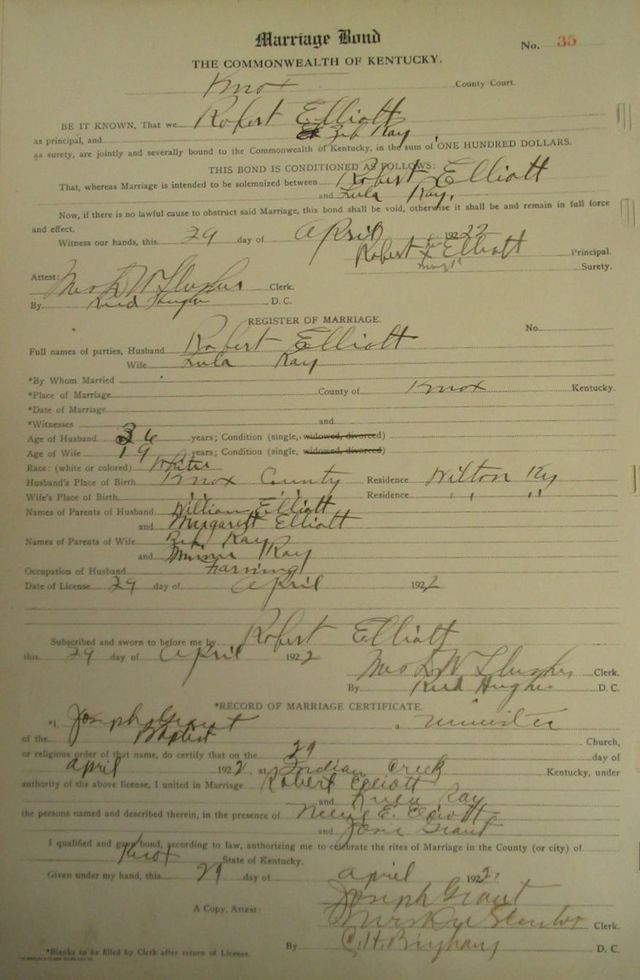 Marriage Bond
No. 35
THE COMMONWEALTH OF KENTUCKY.
Knox County Court.
BE IT KNOWN, That we Robert Elliott
as principal, and Zeb Ray,
as surety, are jointly and severally bound to the Commonwealth of Kentucky, in the sum of ONE HUNDRED DOLLARS.
THIS BOND IS CONDITIONED AS FOLLOWS:
That, whereas Marriage is intended to be solemnized between Robert Elliott
and Lula Ray,
Now, if there is no lawful cause to obstruct said Marriage, this bond shall be void, otherwise it shall be and remain in full force
and effect.
Witness our hands, this 29 day of April 1922
Robert his x Elliott Principal.
mark Surety.
Attest:
Mrs D W Slusher Clerk.
By Reid Hughes D. C.
REGISTER OF MARRIAGE.
No.
Full names of parties, Husband Robert Elliott
Wife Lula Ray
*By Whom Married
*Place of Marriage County of Knox Kentucky.
*Date of Marriage
*Witnesses and
Age of Husband 26 years; Condition (single, widowed, divorced)
Age of Wife 19 years; Condition (single, widowed, divorced)
Race: (white or colored) White
Husband's Place of Birth Knox County Residence Wilton Ky
Wife's Place of Birth " " Residence " "
Names of Parents of Husband William Elliott
and Margaret Elliott
Names of Parents of Wife Ray
and Minnie Ray
Occupation of Husband Farming
Date of License 29 day of April 1922
Subscribed and sworn to before me by Robert Elliott
this 29 day of April 1922
Mrs D W Slusher Clerk.
By Reid Hughes D. C.
*RECORD OF MARRIAGE CERTIFICATE.
*I, Joseph Grant a minister
of the Baptist Church,
or religious order of that name, do certify that on the 29 day of
April 1922 at Indian Creek Kentucky, under
authority of the above license, I united in Marriage Robert Elliott
and Ray
the persons named and described therein, in the presence of E. Elliott
and Grant
I qualified and gave bond, according to law, authorizing me to celebrate the rites of Marriage in the County (or city) of
Knox State of Kentucky.
Given under my hand, this 29 day of April 1922
Joseph Grant
A Copy, Attest: Clerk.
By C. H. Bingham D. C.
*Blanks to be filled by Clerk after return of License.